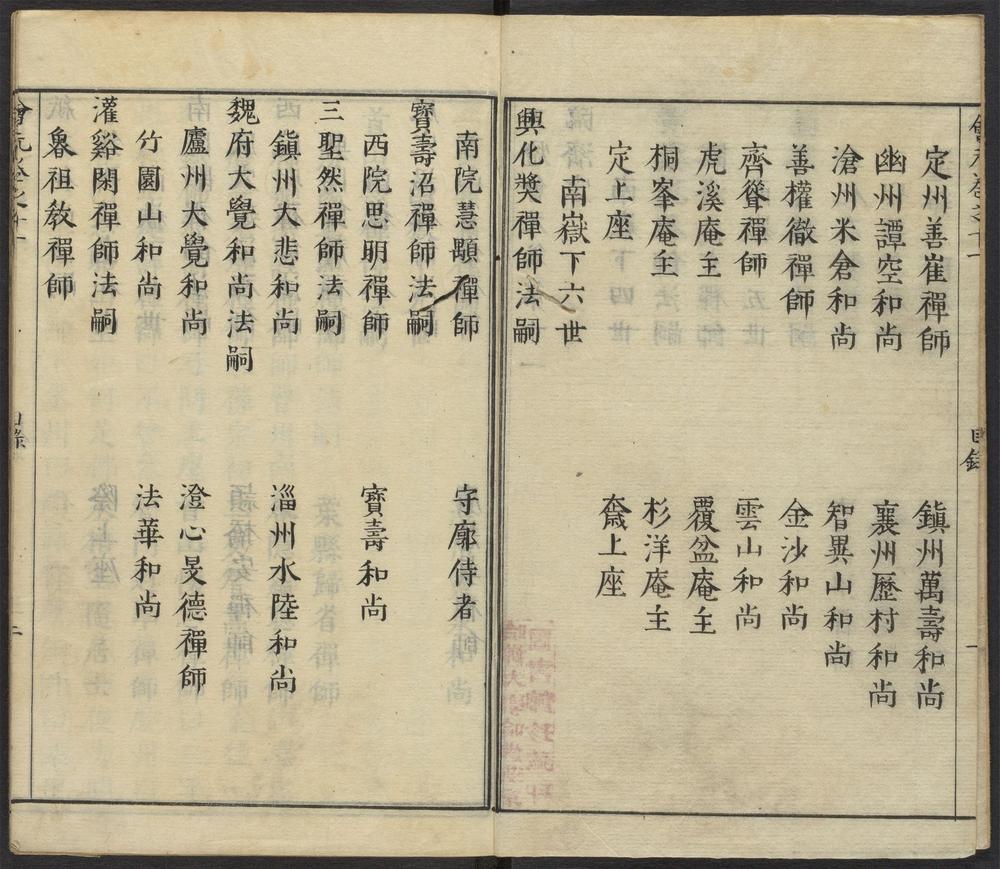 定州善崔禪師 鎭州萬壽和尚
幽州譚空和尚 襄州歷村和尚
滄州米倉和尚 智異山和尚
善權徹禪師 金沙和尚
齊聳禪師 雲山和尚
虎溪庵主 覆盆庵主
桐峯庵主 杉洋庵主
定上座 奯上座
南嶽下六世
興化奬禪師法嗣
南院慧顒禪師 守廓侍者
寶壽沼禪師法嗣
西院思明禪師 寶壽和尚
三聖然禪師法嗣
鎭州大悲和尚 淄州水陸和尚
魏府大覺和尚法嗣
廬州大覺和尚 澄心旻德禪師
竹園山和尚 法華和尚
灌谿閑禪師法嗣
魯祖敎禪師